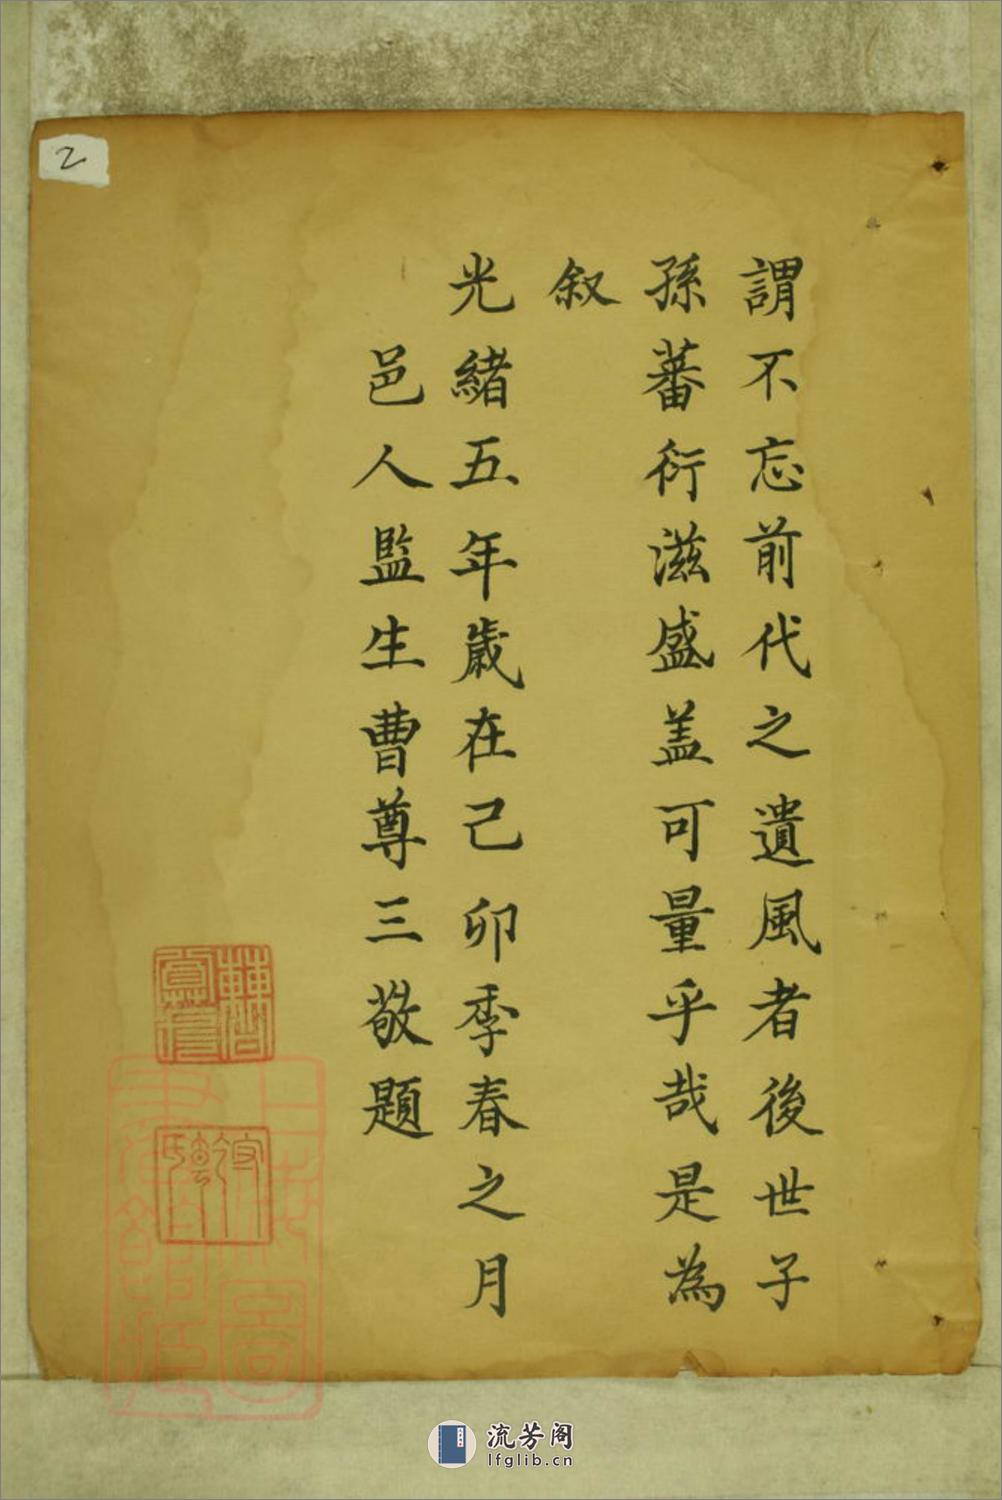 謂不忘前代之遺風者後世子
孫蕃衍滋盛盖可量乎哉是為
叙
光緒五年歲在己卯季春之月
邑人監生曹尊三敬題
2
上海圖
書館藏
流芳阁
lfglib.cn